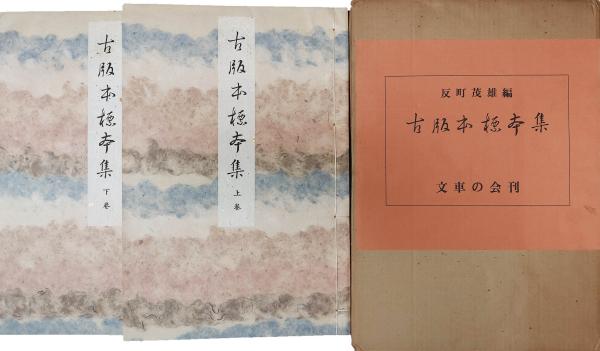 古版本標本集
下巻
古版本標本集
上巻
反町茂雄編
古版本標本集
文車の会刊